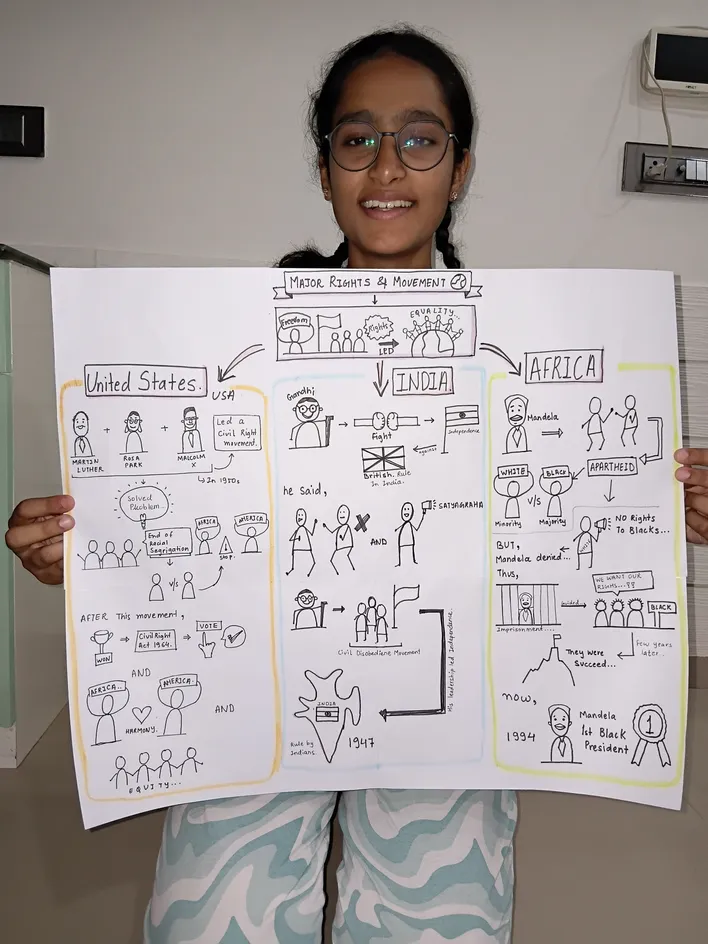 MAJOR RIGHTS & MOVEMENT
Freedom
Rights
LED
EQUALITY...
United States.
USA
MARTIN
LUTHER
+
ROSA
PARK
+
MALCOLM
X
Led a
Civil Right
movement.
In 1950s
Solved
Problem...
End of
Racial
Segrigation
AFRICA
AMERICA
!
Stop.
V/S
AFTER This movement,
WON
Civil Right
Act 1964.
VOTE
AND
AFRICA..
AMERICA.
HARMONY.
AND
EQUITY...
INDIA.
Gandhi
Fight
Independence
against
British Rule
In India.
he said,
AND
SATYAGRAHA
Civil Disobediane Movement
His leadership led Independence.
INDIA
Rule by
Indians.
1947
AFRICA
Mandela
WHITE
V/S
BLACK
Minority
Majority
APARTHEID
NO Rights
To Blacks...
BUT,
Mandela denied...
Thus,
WE WANT OUR
RIGHTS...!!
BLACK
Imprisonment....
They were
Succeed...
Few years
later..
now,
1994
Mandela
1st Black
President
1